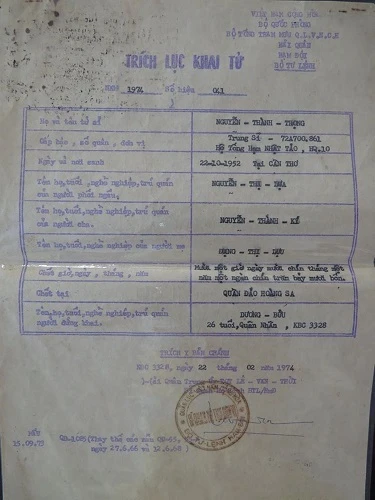 VIỆT NAM CỘNG HÒA
BỘ QUỐC PHÒNG
BỘ TỔNG THAM MƯU Q.L.V.N.C.H
HẢI QUÂN
BỘ TƯ LỆNH
TRÍCH LỤC KHAI TỬ
NĂM 1974 Số hiệu 041
Họ và tên tử sĩ NGUYỄN - THÀNH - TRỌNG
Cấp bậc, số quân, đơn vị Trung Sĩ - 72A700.861
Hộ Tống Hạm NHẬT TẢO, HQ.10
Ngày và nơi sanh 22-10-1952 TẠI CẦN THƠ
Tên họ, tuổi, nghề nghiệp, trú quán
của người phối ngẫu, NGUYỄN - THỊ -
Tên họ, tuổi, nghề nghiệp, trú quán
của người cha. NGUYỄN - THÀNH -
Tên họ, tuổi, nghề nghiệp của người mẹ - THỊ -
Chết giờ, ngày, tháng, năm Mười một giờ ngày mười chín tháng một
năm một ngàn chín trăm bảy mươi bốn.
Chết tại QUẦN ĐẢO HOÀNG SA
Tên, họ, tuổi, nghề nghiệp, trú quán
người đứng khai. DƯƠNG - BỬU
26 tuổi, Quân Nhân, KBC 3328
TRÍCH Y BẢN CHÍNH
KBC 3328, ngày 22 tháng 02 năm 1974
MẪU
15.09.73
QĐ.1025 (Thay thế các mẫu
ngày 27.6.66 và 12.6.68)